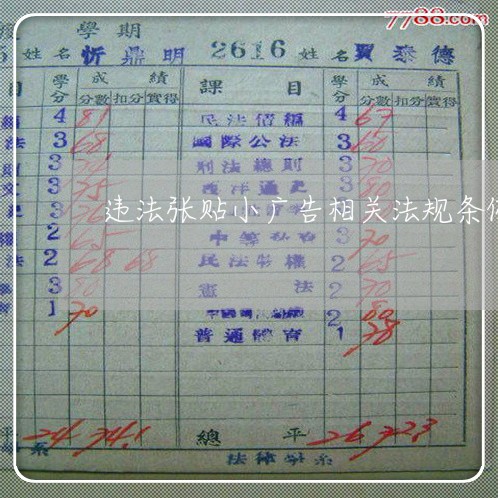 7788.com
學期
姓名 忻鼎明 2616 姓名 賈泰德
目 學分 成績 課目 學分 成績
分數 扣分 實得 分數 扣分 實得
4 81 民法債編 4 67
法 3 68 國際公法 3 60
3 刑法總則 3 70
3 75 西洋通史 3 80
違法张贴小广告相关法规条例
2 65 3 70
法 2 68 68 民法物權 2 65
3 80 憲法 2 70
1 70 2 80
普通體育 1 78
平 24 74.1 總平 26 72.3
系 法律學系